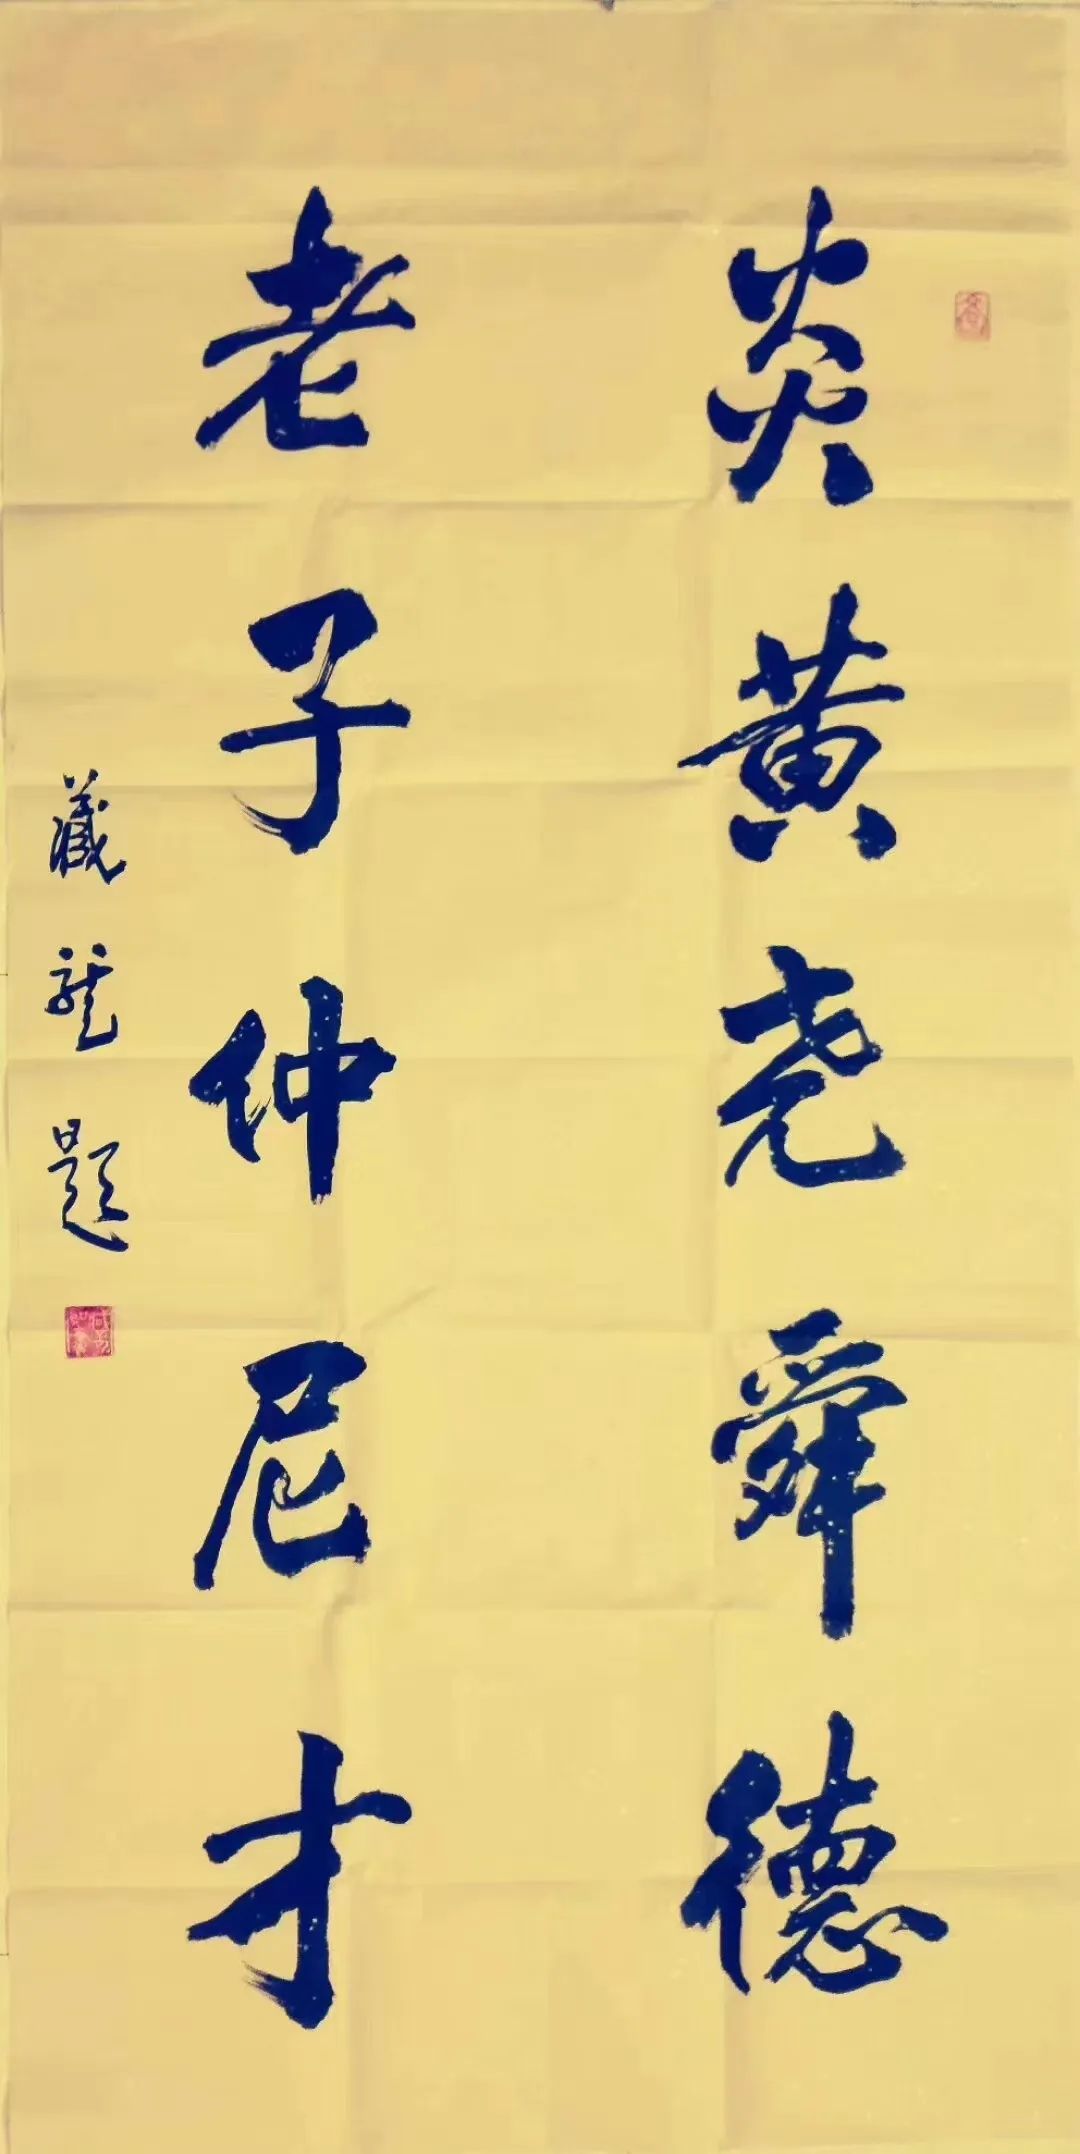 炎黄尧舜德
老子仲尼才
藏龙題